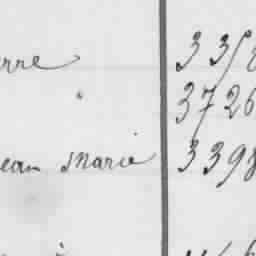 erre 335
" 3726
ean Marie 3398